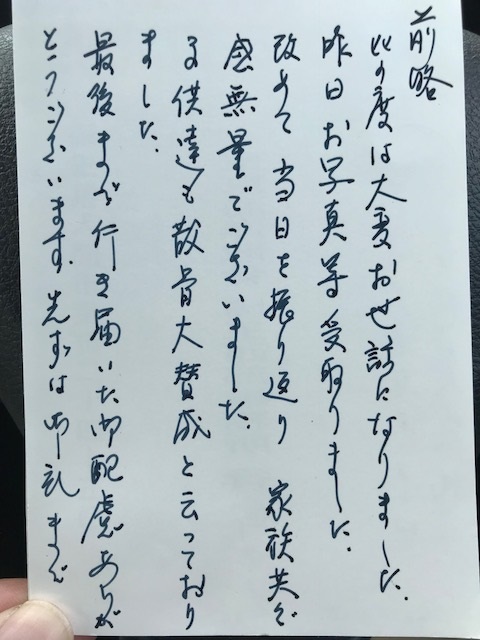 前略
此の度は大変お世話になりました。
昨日お写真等受取りました。
改めて当日を振り返り 家族共々
感無量でございました。
子供達も散骨大賛成と云っており
ました。
最後まで行き届いた御配慮ありが
とうございます。先ずは御礼まで